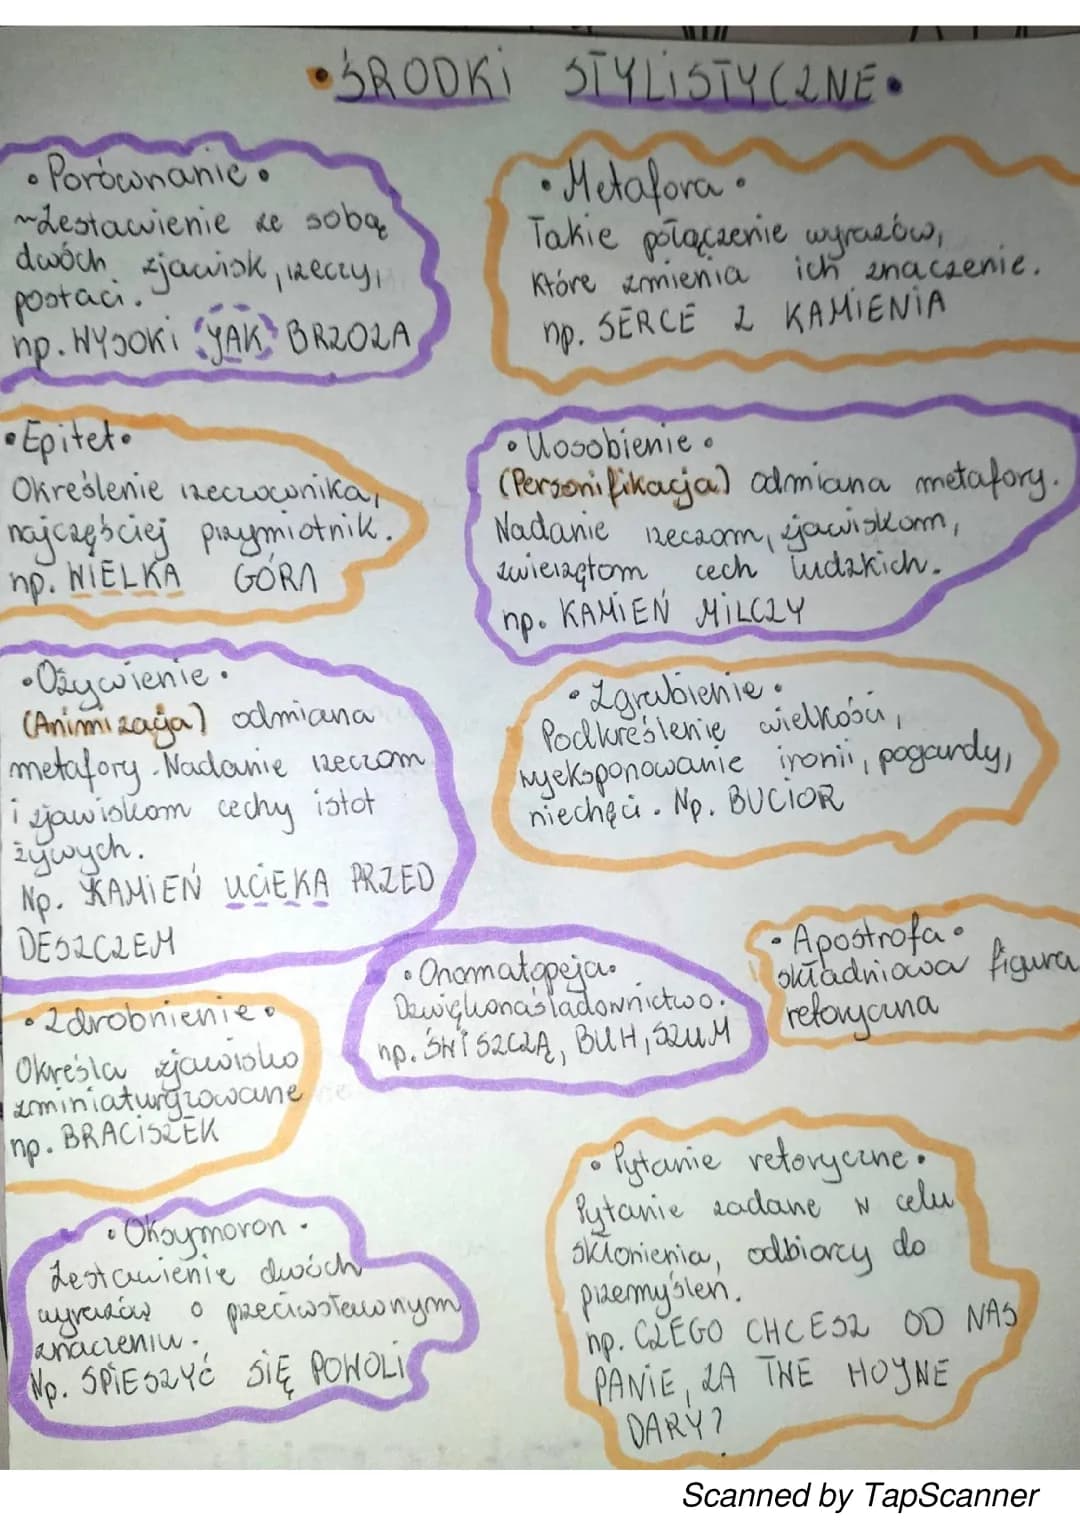 •ŚRODKI STYLISTYCZNE•
• Porównanie •
~Zestawienie ze sobą
dwóch zjawisk, rzeczy,
postaci.
np. WYSOKI JAK BRZOZA
• Metafora •
Takie połączenie wyrazów,
które zmienia ich znaczenie.
np. SERCE Z KAMIENIA
• Epitet •
Określenie rzeczownika,
najczęściej przymiotnik.
np. WIELKA GÓRA
• Uosobienie •
(Personifikacja) odmiana metafory.
Nadanie rzeczom, zjawiskom,
zwierzętom cech ludzkich.
np. KAMIEŃ MILCZY
• Ożywienie •
(Animizacja) odmiana
metafory. Nadanie rzeczom
i zjawiskom cechy istot
żywych.
Np. KAMIEŃ UCIEKA PRZED
DESZCZEM
• Zgrubienie •
Podkreślenie wielkości,
wyeksponowanie ironii, pogardy,
niechęci. Np. BUCIOR
• Onomatopeja •
Dzwiękonaśladownictwo.
np. ŚWISZCZĄ, BUH, SZUM
• Apostrofa •
składniowa figura
retoryczna
• Zdrobnienie •
Określa zjawisko
zminiaturyzowane
np. BRACISZEK
• Oksymoron •
Zestawienie dwóch
wyrazów o przeciwstawnym
znaczeniu.
Np. SPIESZYĆ SIĘ POWOLI
• Pytanie retoryczne •
Pytanie zadane w celu
skłonienia, odbiorcy do
przemyśleń.
np. CZEGO CHCESZ OD NAS
PANIE, ZA TWE HOJNE
DARY?
Scanned by TapScanner